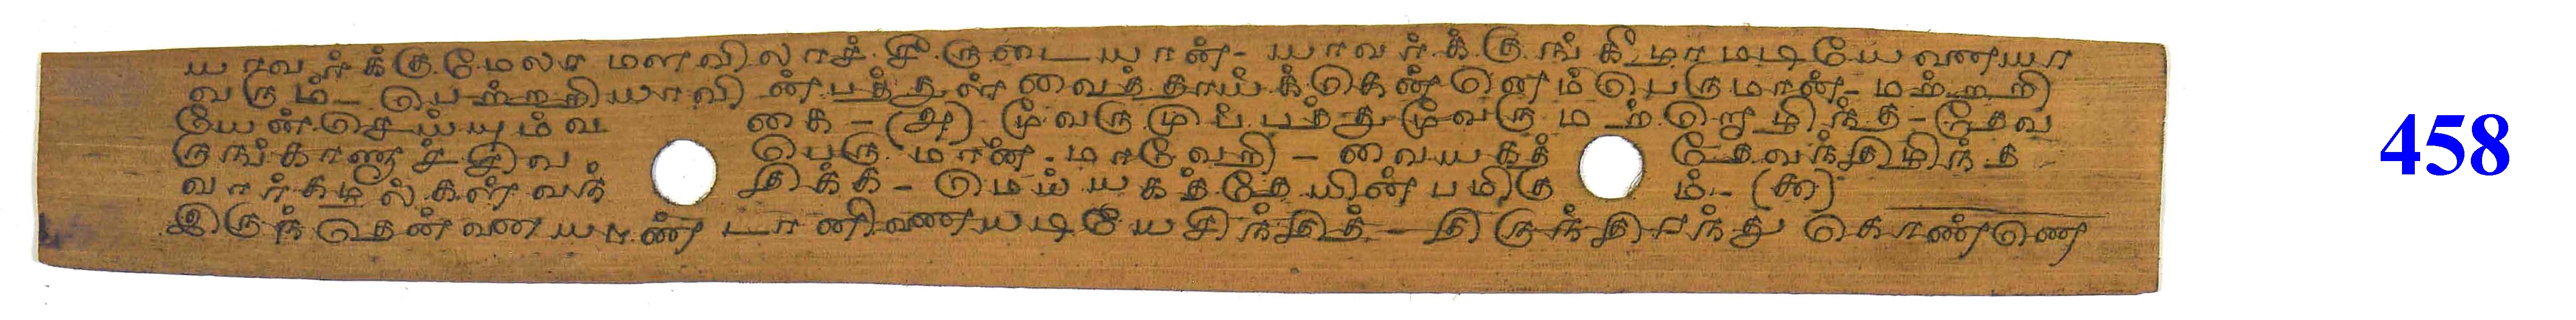 யாவர்க்குமேலா மளவிலாச்சீருடையான்- யாவர்க்குங்கீழாமடியேனையா
வரும்- பெற்றறியாவி ன்பத்துள்வைத்தாய்க்கென்னெம்பெருமான்- மற்றறி
யேன்செய்யும்வ கை- (௮) மூவருமுப்பத்துமூவரு மற்றொழிந்த- தேவ
ருங்காணாச்சிவ பெருமான்- மாவேறி- வையகத் தேவந்திழிந்த
வார்கழல்கள்வந் திக்க- மெய்யகத்தேயின்பமிகு ம்- (௯)
இருந்தென்னையாண்டானிணையடியேசிந்தித்- திருந்திரந்து கொண்ணெ
458